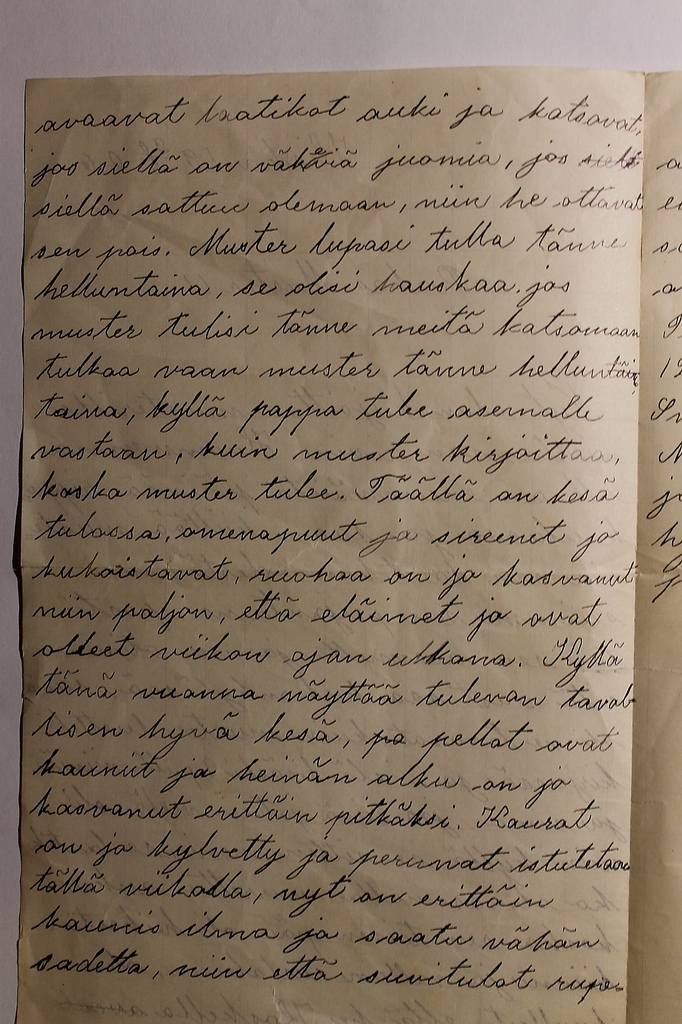 avaavat laatikot auki ja katsovat,
jos siellä on väkeviä juomia, jos
siellä sattuu olemaan, niin he ottavat
sen pois. Muster lupasi tulla tänne
helluntaina, se olisi hauskaa, jos
muster tulisi tänne meitä katsomaan
tulkaa vaan muster tänne hellun
taina, kyllä pappa tulee asemalle
vastaan, kuin muster kirjoittaa,
koska muster tulee. Täällä on kesä
tulossa, omenapuut ja sireenit jo
kukoistavat, ruohoa on jo kasvanut
niin paljon, että eläimet jo ovat
olleet viikon ajan ulkona. Kyllä
tänä vuonna näyttää tulevan taval-
lisen hyvä kesä, pa pellot ovat
kauniit ja heinän alku on jo
kasvanut erittäin pitkäksi. Kaurat
on jo kylvetty ja perunat istutetaan
tällä viikolla, nyt on erittäin
kaunis ilma ja saatu vähän
sadetta, niin että suvitulot